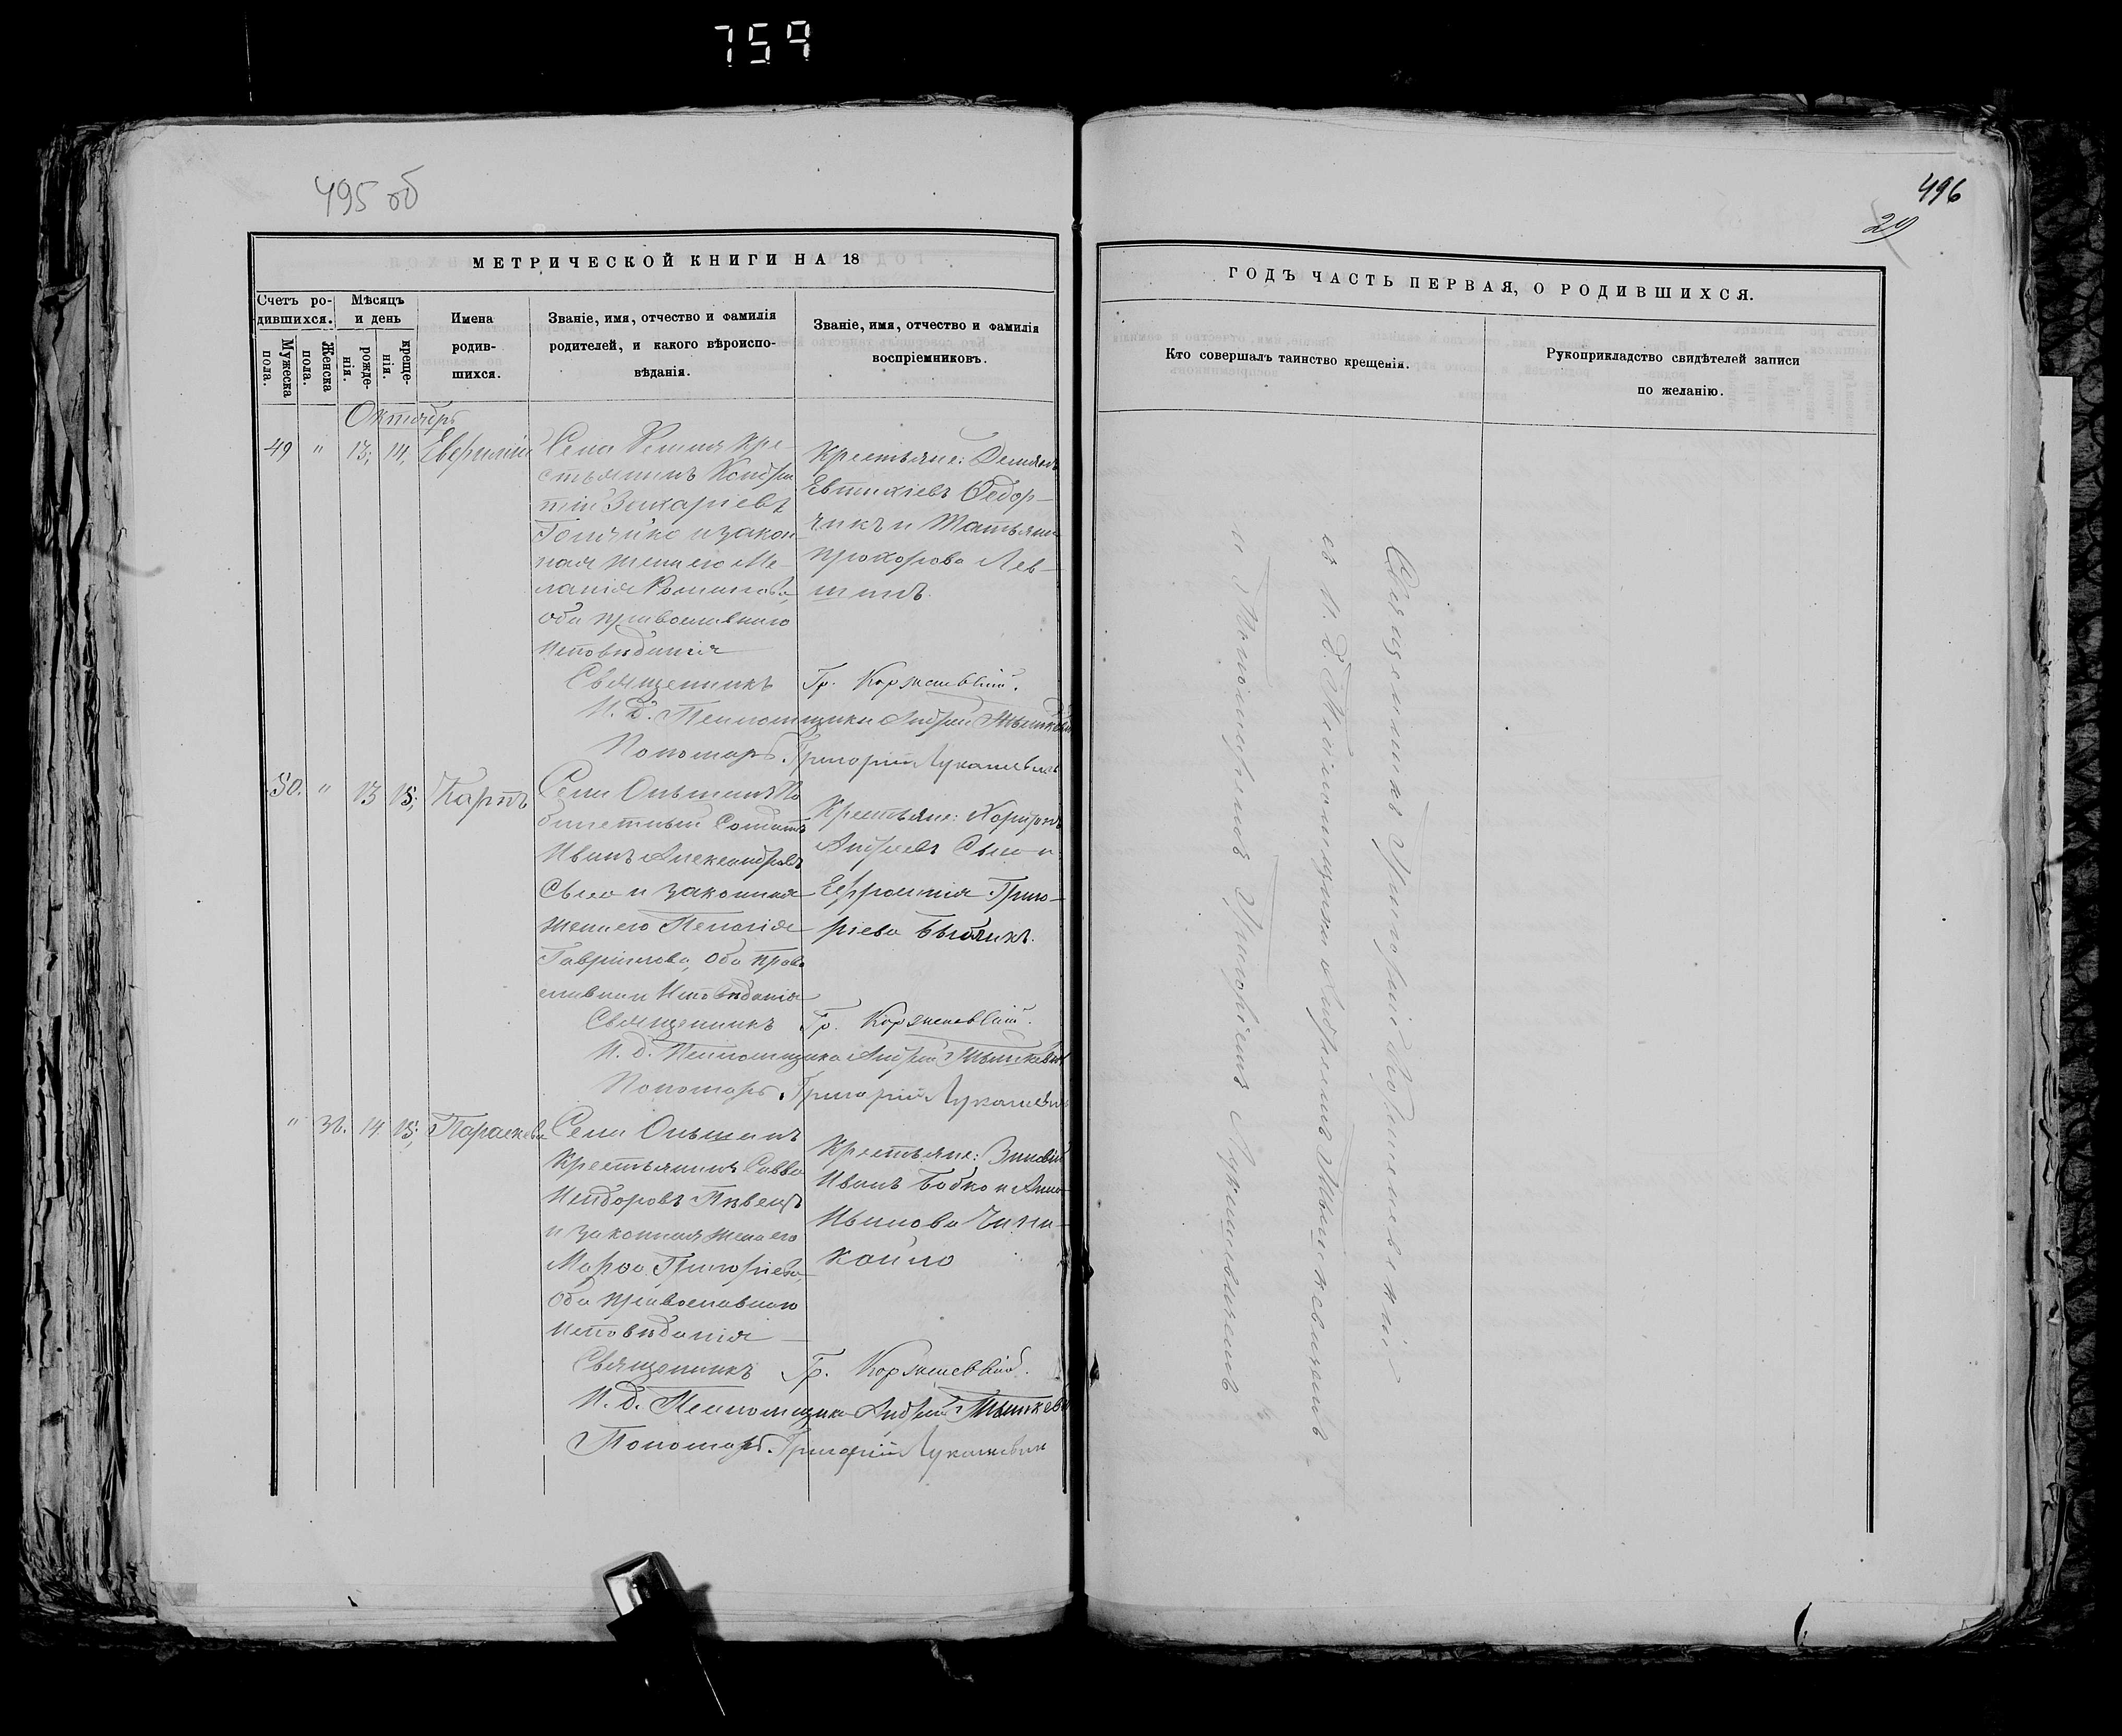 759
495 об
МЕТРИЧЕСКОЙ КНИГИ НА 18
Счетъ ро-
дившихся.
Мужеска
пола.
Женска
пола.
Мѣсяцъ
и день
рожде-
нія.
креще-
нія.
Имена
родив-
шихся.
Званіе, имя, отчество и фамилія
родителей, и какого вѣроиспо-
вѣданія.
Званіе, имя, отчество и фамилія
воспріемниковъ.
Октябрь
49 " 13; 14;
Села кре-
стьянинъ Кондра
тій Захаріевъ
и закон
ная жена его Ме-
ланія Романова,
оба православнаго
исповѣданія
Крестьяне: Демянъ
Евтихіевъ Федор-
чикъ и Татьяна
Прохорова Лев-
Священникъ Гр. Корженевскій.
И. д. Псаломщика Андрей Мышкевич
Пономарь Григорій Лукашевич
50. " 13 15; Карпъ
Села Ольшанъ
билетный Солдатъ
Иванъ Александровъ
Сыло и законная
жена его Пелагія
Гавриилова, оба право
славнаго исповѣданія
Крестьяне: Харитонъ
Андреевъ Сыло и
Ефросинія Григо-
ріева
Священникъ Гр. Корженевскій.
И. д. Псаломщика Андрей Мышкевич
Пономарь Григорій Лукашевич
" 36. 14 15; Параскева
Села Ольшанъ
Крестьянинъ Савва
Исидоровъ Пивецъ
и законная жена его
Марфа Григоріева,
оба православнаго
исповѣданія
Крестьяне: Зиновій
Иванъ Бобко и Анна
Иванова
Священникъ Гр. Корженевскій.
И. д. Псаломщика Андрей Мышкевич
Пономарь Григорій Лукашевич
496
29
ГОДЪ ЧАСТЬ ПЕРВАЯ, О РОДИВШИХСЯ.
Кто совершалъ таинство крещенія.
Рукоприкладство свидѣтелей записи
по желанію.
Священникъ Григорій Корженевскій
съ И. д. Псаломщика Андреемъ Мышкевичемъ
и Пономаремъ Григоріемъ Лукашевичемъ